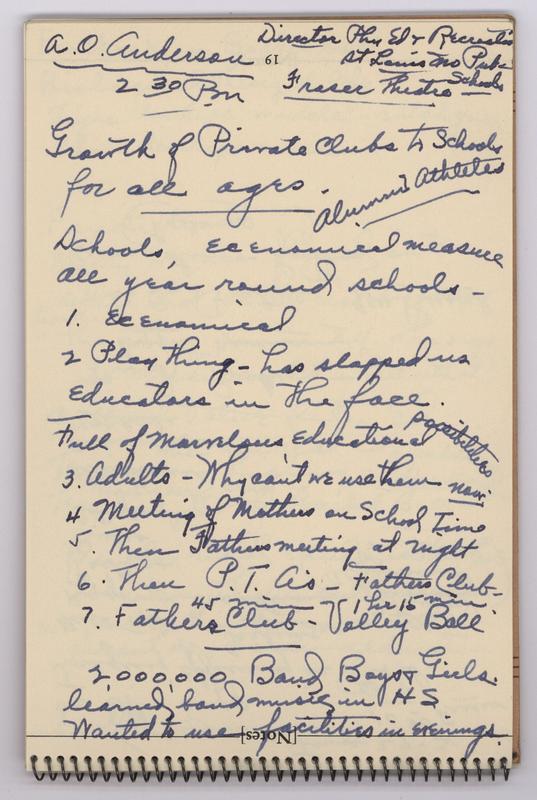 A. O. Anderson
Director Phy Ed & Recreation
St Louis Mo Pub-
Schools
19
2 30 Pm
Fraser Theatre
Growth of Private Clubs to Schools
for all ages.
Alumni Athletes
Schools, Economical measure
all year round schools -
1. Economical
2 Play thing - has slapped us
Educators in the face.
Full of Marvelous Educational possibilities
3. Adults - Why can't we use them now.
4 Meeting of Mothers on School Time
5. Then Fathers meeting at night
6. Then P.T. A's - Fathers Club-
45 min 1 hr 15 min.
7. Fathers Club - Volley Ball
2000,000 Band Boys & Girls.
learned band music in H S
Wanted to use facilities in evenings.
[Notes]